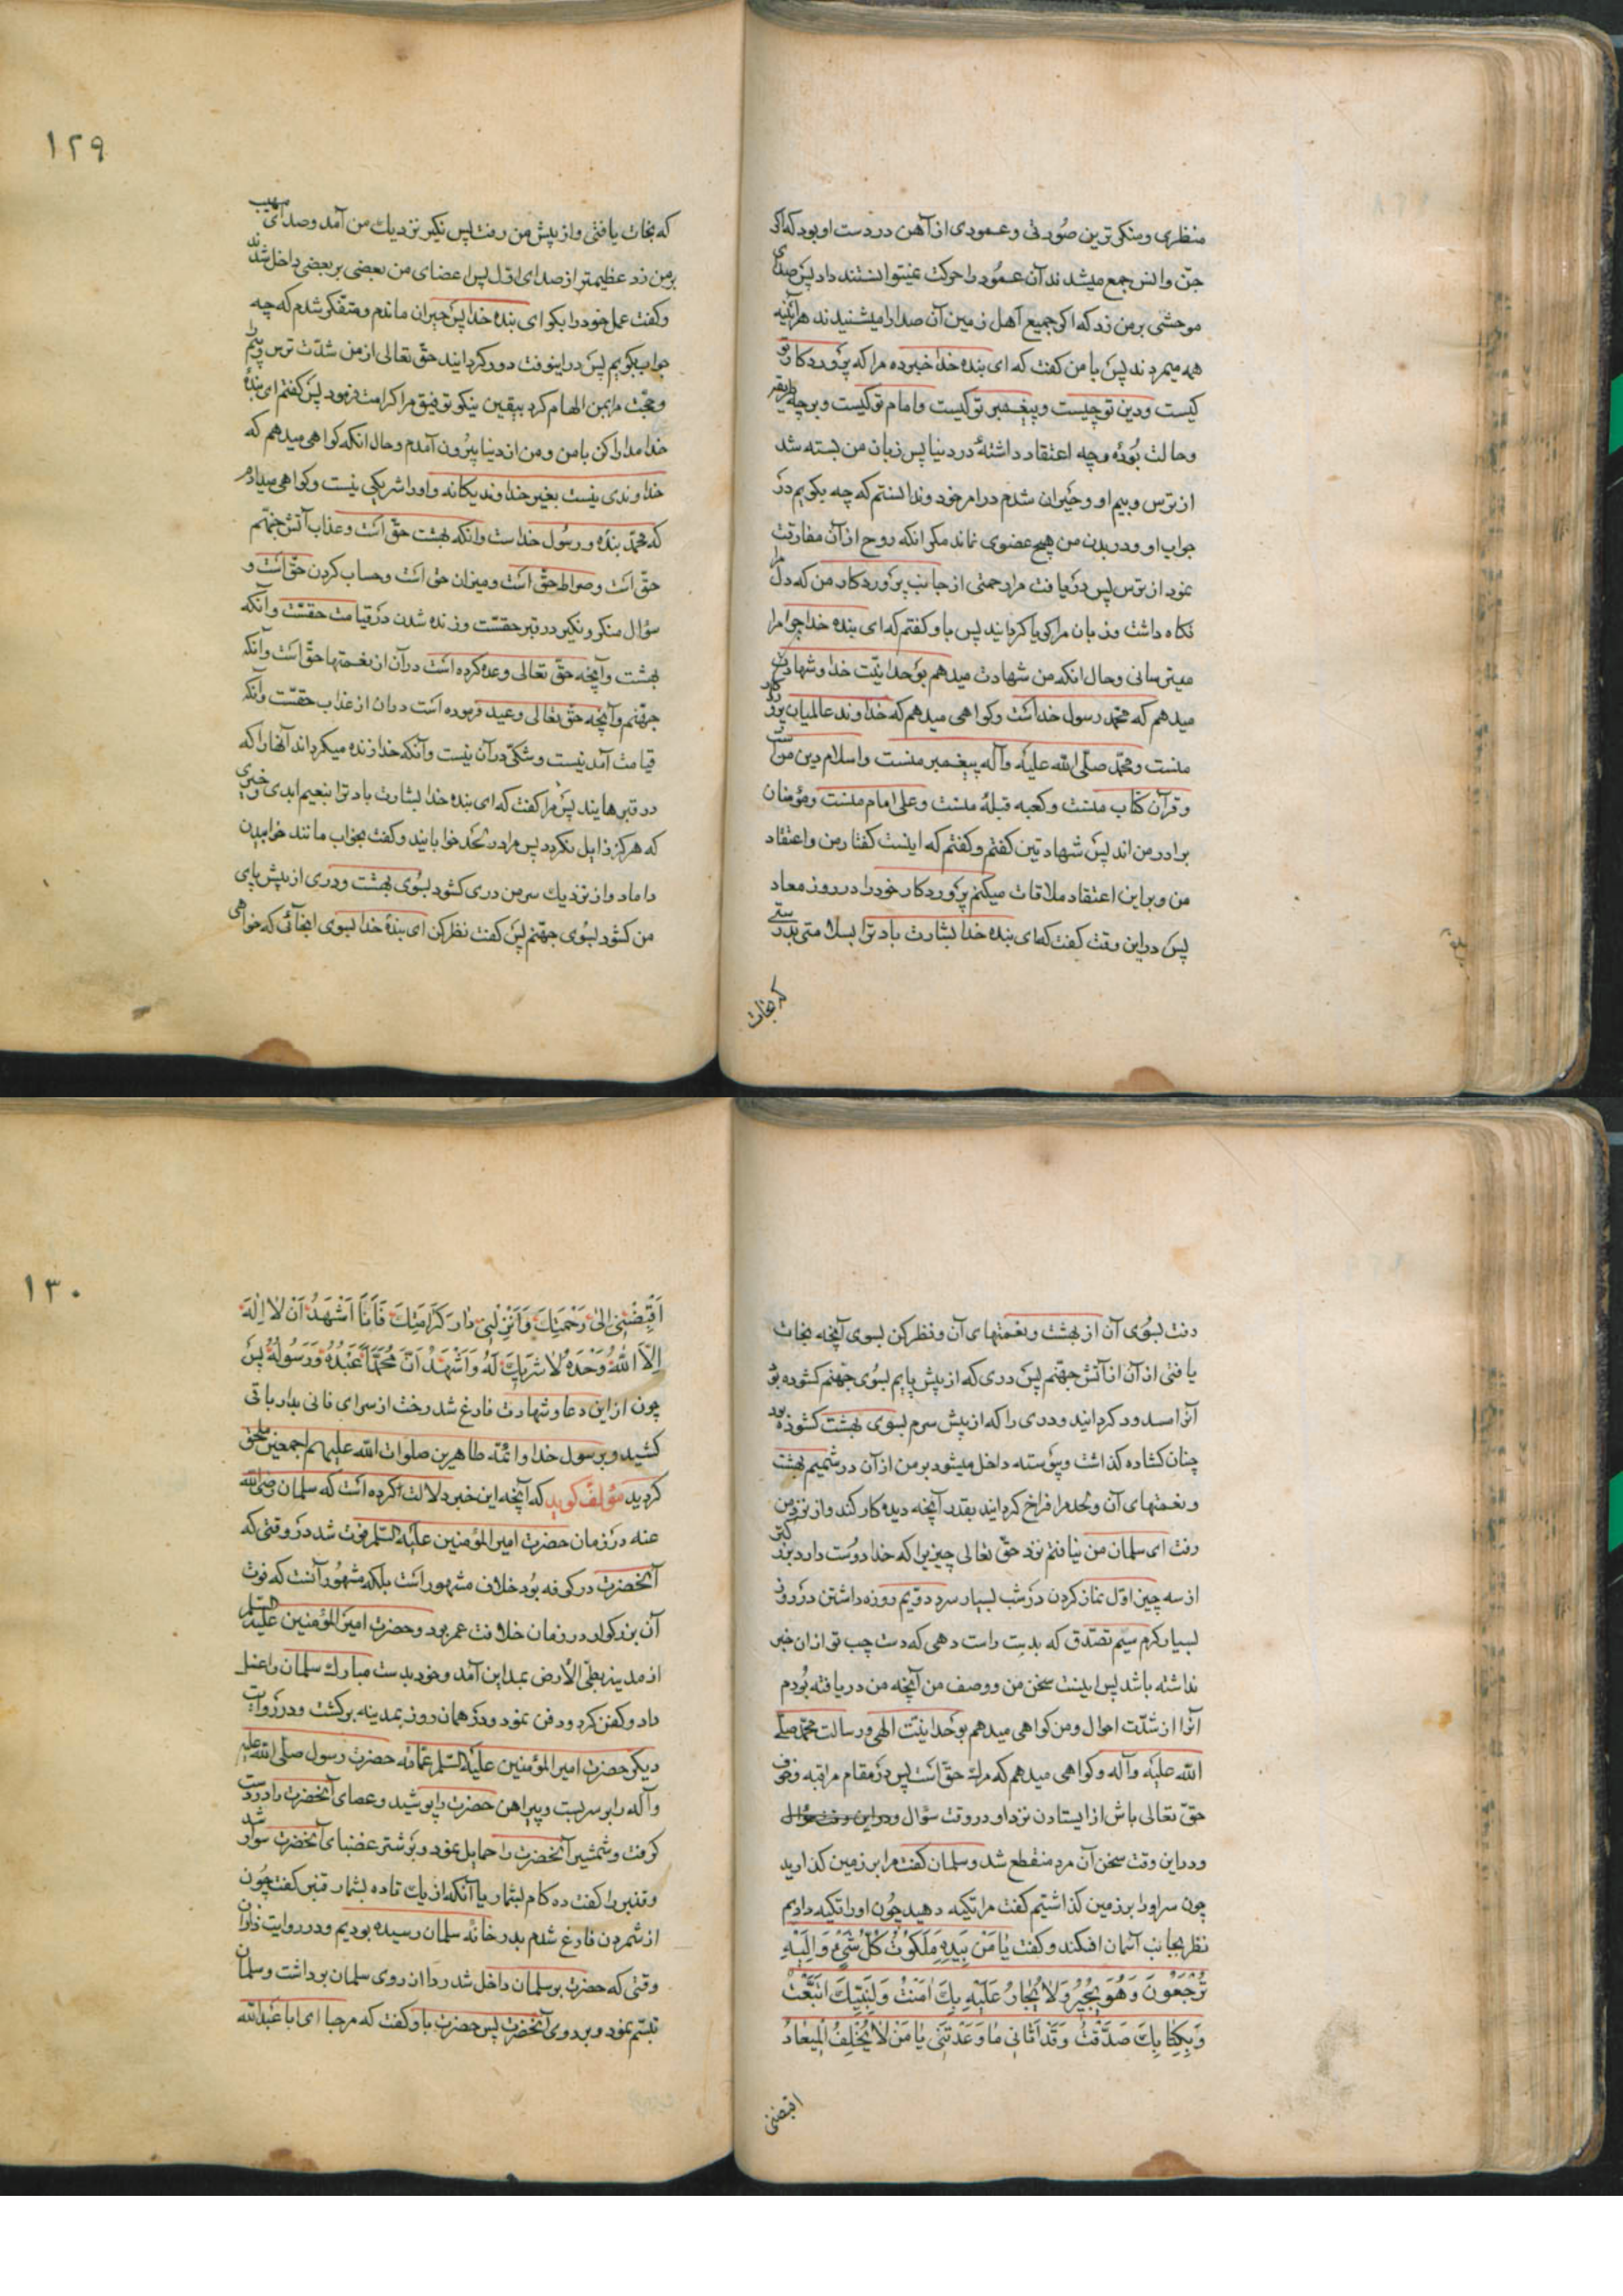 منظری و منکر ترین صورتی و عمودی از آهن در دست او بود که اکر
جن و انس جمع میشدند آن عمود را حرکت نمیتوانستند داد پس صدای
موحشی بر من زد که اکر جمیع اهل زمین آن صدا را میشنیدند هر آینه
همه میمردند پس با من کفت که ای بنده خدا خبر ده مرا که پروردکار تو
کیست و دین تو چیست و پیغمبر تو کیست و امام تو کیست و بر چه طریقه
و حالت بودهٔ و چه اعتقاد داشتهٔ در دنیا پس زبان من بسته شد
از ترس و بیم او و حیران شدم در امر خود و ندانستم که چه بکویم در
جواب او و در بدن من هیچ عضوی نماند مکر انکه روح از آن مفارقت
نمود از ترس پس دریافت مرا رحمتی از جانب پروردکار من که دل مرا
نکاه داشت و زبان مرا کویا کردانید پس باو کفتم که ای بنده خدا چرا مرا
میترسانی و حال انکه من شهادت میدهم بوحدانیت خدا و شهادت
میدهم که محمد رسول خداست و کواهی میدهم که خداوند عالمیان پروردکار
منست و محمد صلی الله علیه و آله پیغمبر منست و اسلام دین منست
و قرآن کتاب منست و کعبه قبلهٔ منست و علی امام منست و مؤمنان
برادر من اند پس شهادتین کفتم و کفتم که اینست کفتار من و اعتقاد
من و بر این اعتقاد ملاقات میکنم پروردکار خود را در روز معاد
پس در این وقت کفت که ای بنده خدا بشارت باد ترا بسلامتی بدرستی
که نجات
١٢٩
که نجات یافتی و از پیش من رفت پس نکیر نزدیك من آمد و صدای مهیب
بر من زد عظیمتر از صدای اول پس اعضای من بعضی بر بعضی داخل شدند
و کفت عمل خود را بکو ای بنده خدا پس حیران ماندم و متفکر شدم که چه
جواب بکویم پس در اینوقت دور کردانید حق تعالی از من شدت ترس و بیم را
و حجت مرا بمن الهام کرد بیقین نیکو توفیق مرا کرامت فرمود پس کفتم ای بندهٔ
خدا مدارا کن با من و من از دنیا بیرون آمدم و حال انکه کواهی میدهم که
خداوندی نیست بغیر خداوند یکانه و او را شریکی نیست و کواهی میدهم
که محمد بنده و رسول خداست و انکه بهشت حق است و عذاب آتش جهنم
حق است و صراط حق است و میزان حق است و حساب کردن حق است و
سؤال منکر و نکیر در قبر حقست و زنده شدن در قیامت حقست و آنکه
بهشت و آنچه حق تعالی وعده کرده است در آن از نعمتها حق است و آنکه
جهنم و آنچه حق تعالی وعید فرموده است در ان از عذاب حقست و آنکه
قیامت آمدنیست و شکی در آن نیست و آنکه خدا زنده میکرداند آنها را که
در قبرهایند پس مرا کفت که ای بنده خدا بشارت باد ترا بنعیم ابدی و خیری
که هرکز زایل نکردد پس مرا در لحد خوابانید و کفت بخواب مانند خوابیدن
داماد و از نزدیك سر من دری کشود بسوی بهشت و دری از پیش پای
من کشود بسوی جهنم پس کفت نظر کن ای بندهٔ خدا بسوی انجائی که خواهی
رفت بسوی آن از بهشت و نعمتهای آن و نظر کن بسوی آنچه نجات
یافتی از آن از آتش جهنم پس دری که از پیش پایم بسوی جهنم کشوده بود
آنرا مسدود کردانید و دری را که از پیش سرم بسوی بهشت کشوده بود
چنان کشاده کذاشت و پیوسته داخل میشود بر من از آن در شمیم بهشت
و نعمتهای آن و لحد مرا فراخ کردانید بقدر آنچه دیده کار کند و از نزد من
رفت ای سلمان من نیافتم نزد حق تعالی چیزیرا که خدا دوست دارد بزرکتر
از سه چیز اول نماز کردن در شب بسیار سرد دویم روزه داشتن در روز
بسیار کرم سیم تصدق که بدست راست دهی که دست چپ تو از ان خبر
نداشته باشد پس اینست سخن من و وصف من آنچه من دریافته بودم
آنرا از شدت احوال و من کواهی میدهم بوحدانیت الهی و رسالت محمد صلی
الله علیه و آله و کواهی میدهم که مرك حق است پس در مقام مراقبه و خوف
حق تعالی باش از ایستادن نزد او در وقت سؤال
و در این وقت سخن آن مرد منقطع شد و سلمان کفت مرا بر زمین کذارید
چون سر او را بر زمین کذاشتیم کفت مرا تکیه دهید چون او را تکیه دادیم
نظر بجانب آسمان افکند و کفت یٰا مَنْ بِیَدِهِ مَلَکُوتُ کُلِّ شَیْءٍ وَ اِلَیْهِ
تُرْجَعُونَ وَ هُوَ یُجِیرُ وَ لٰا یُجٰارُ عَلَیْهِ بِكَ اٰمَنْتُ وَ لِنَبِیِّكَ اتَّبَعْتُ
وَ بِکِتٰابِكَ صَدَّقْتُ وَ قَدْ اَتٰانِی مٰا وَعَدْتَنِی یٰا مَنْ لٰا یُخْلِفُ الْمِیعٰادَ
اقبضنی
١٣٠
اَقْبِضْنِی اِلیٰ رَحْمَتِكَ وَ اَنْزِلْنِی دٰارَ کَرٰامَتِكَ فَاَنَا اَشْهَدُ اَنْ لٰا اِلٰهَ
اِلَّا اللهُ وَحْدَهُ لٰا شَرِیكَ لَهُ وَ اَشْهَدُ اَنَّ مُحَمَّدًا عَبْدُهُ وَ رَسُولُهُ پس
چون از این دعا و شهادت فارغ شد رخت از سرای فانی بدار باقی
کشید و برسول خدا و ائمه طاهرین صلوات الله علیهم اجمعین ملحق
کردید مؤلف کوید که آنچه این خبر دلالت کرده است که سلمان رضی الله
عنه در زمان حضرت امیر المؤمنین علیه السلم فوت شد در وقتی که
آنحضرت در کوفه بود خلاف مشهور است بلکه مشهور آنست که فوت
آن بزرکوار در زمان خلافت عمر بود و حضرت امیر المؤمنین علیه السلم
از مدینه بطی الأرض بمداین آمد و خود بدست مبارك سلمان را غسل
داد و کفن کرد و دفن نمود و در همان روز بمدینه برکشت و در روایت
دیکر حضرت امیر المؤمنین علیه السلم عمامه حضرت رسول صلی الله علیه
و آله را بر سر بست و پیراهن حضرت را پوشید و عصای آنحضرت را در دست
کرفت و شمشیر آنحضرت را حمایل نمود و بر شتر عضبای آنحضرت سوار شد
و قنبر را کفت ده کام بشمار یا آنکه از یك تا ده بشمار قنبر کفت چون
از شمردن فارغ شدم بدر خانه سلمان رسیده بودیم و در روایت زاذان
وقتی که حضرت بر سلمان داخل شد ردا از روی سلمان برداشت و سلمان
تبسم نمود و بر روی آنحضرت پس حضرت باو کفت که مرحبا ای ابا عبد الله